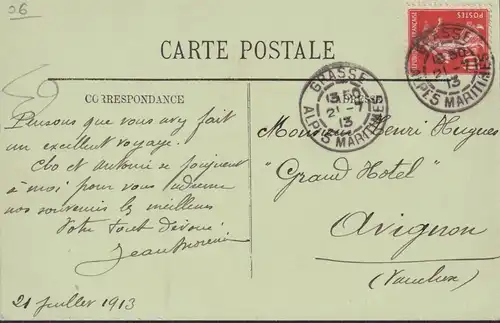 26
CARTE POSTALE
CORRESPONDANCE
Pensons que vous avez fait
un excellent voyage.
Clo et Antoine se joignent
à moi pour vous
nos souvenirs les meilleurs
Votre tout dévoué
21 juillet 1913
POSTES
GRASSE
13 50
21 - 7
13
ALPES MARITIMES
GRASSE
13 50
21 - 7
13
ALPES MARITIMES
Monsieur Henri Hugues
"Grand Hotel"
Avignon
(Vaucluse)